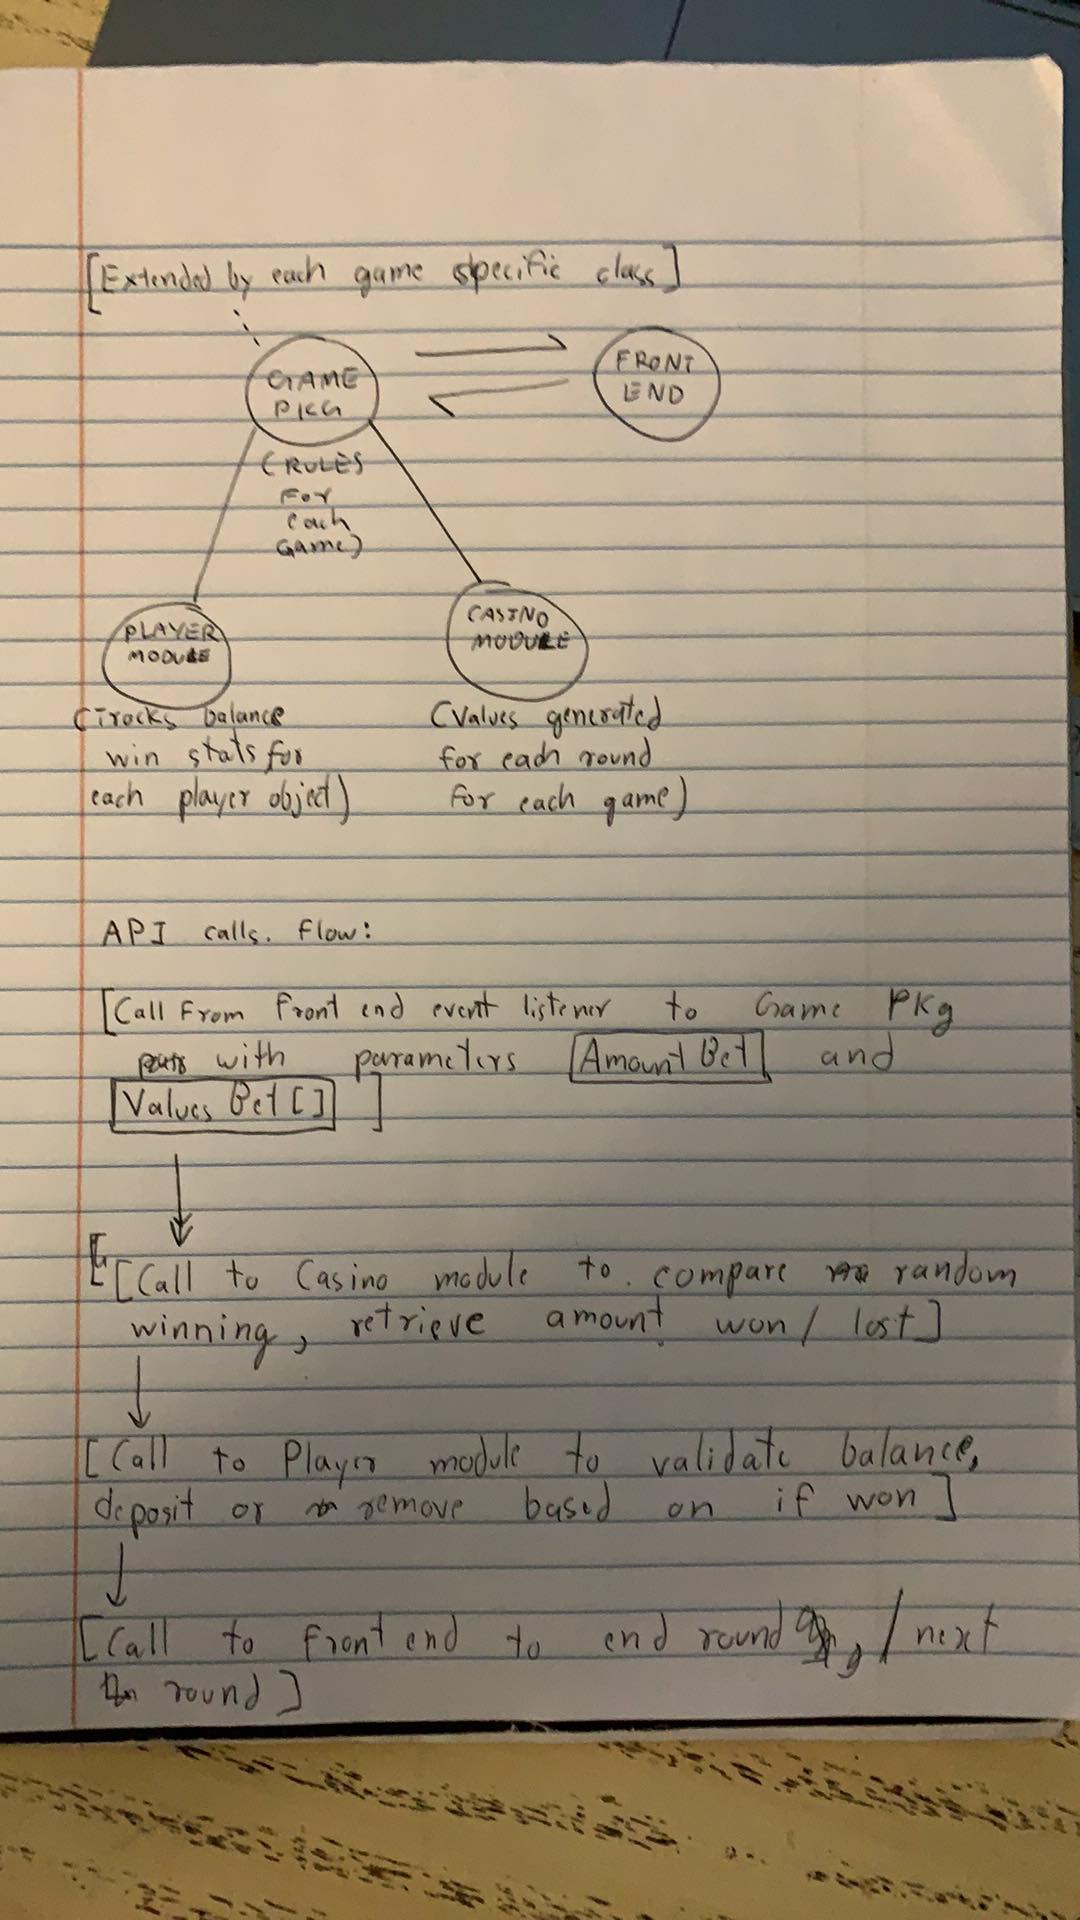 [Extended by each game specific class]
GAME
PKG
FRONT
END
(RULES
For
each
Game)
PLAYER
MODULE
CASINO
MODULE
(Tracks balance
win stats for
each player object)
(Values generated
for each round
for each game)
API calls. Flow:
[Call From Front end event listener to Game PKg
with parameters Amount Bet and
Values Bet [] ]
[Call to Casino module to compare random
winning, retrieve amount won / lost]
[Call to Player module to validate balance,
deposit or remove based on if won]
[Call to Front end to end round, / next
round]